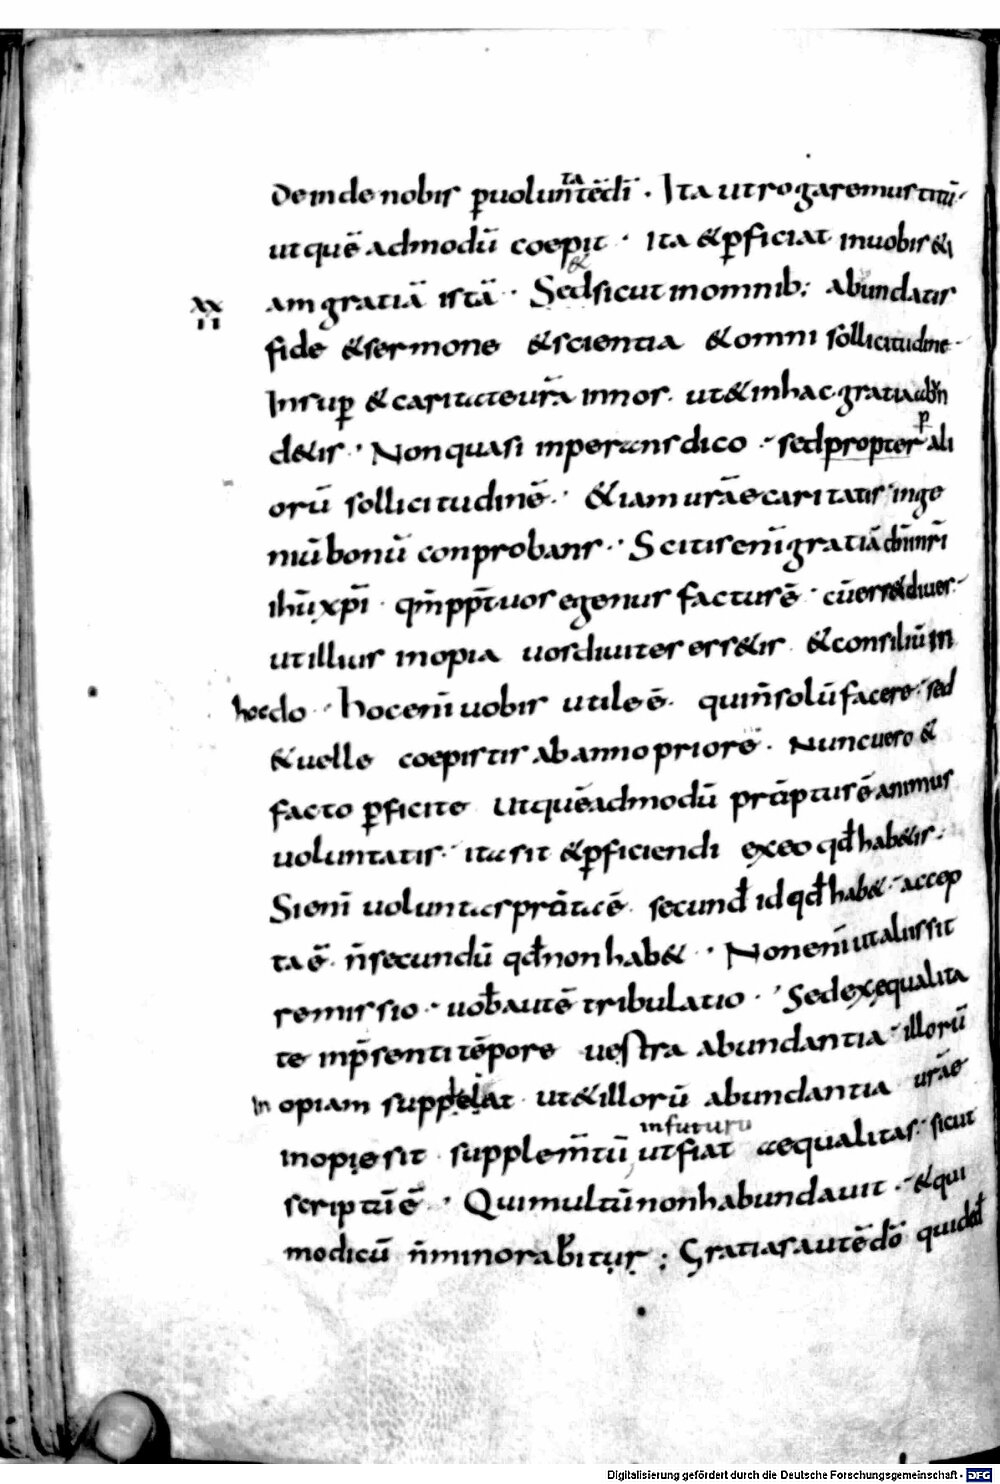 Deinde nobis ꝑuolun`ta´tē dī · Ita ut rogaremus titū ·
ut quē admodū coepit · ita & ꝑficiat inuobis &i
XXII am gratiā istā · Sed `&´ sicut inomnib; abundatis
fide & sermone & scientia & omni sollicitudine ·
Insuꝑ & caritate urā innos · ut & inhac gratia abun
detis · Non quasi imperans dico · sed propter ꝑ ali
orū sollicitudinē · &iam urāe caritatis inge
niū bonū conprobans · Scitis enī gratiā dnī nrī
ihū xpī · qm̄ ppt̄ uos egenus factus ē · cū ess& diues ·
ut illius inopia uos diuites ess&is · & consiliū in
hoc do · hoc enī uobis utile ē · qui n̄ solū facere · sed
& uelle coepistis ab anno priore · Nunc uero &
facto ꝑficite ut quē admodū prōptus ē animus
uoluntatis · ita sit & ꝑficiendi ex eo qđ hab&is ·
Si enī uoluntas prōta ē · secund id qđ hab& · accep
ta ē · n̄ secundū qđ non hab& · Non enī ut aliis sit
remissio · uob autē tribulatio · Sed ex equalita
te inp̄senti tēpore uestra abundantia · illorū
In opiam suppleat ut & illorū abundantia urāe
inopię sit supplem̄tū ut fiat `infuturū´ aequalitas · sicut
scriptū ē · Qui multū non habundauit · & qui
modicū n̄ minorabitur ; Gratias autē dō qui ded
Digitalisierung gefördert durch die Deutsche Forschungsgemeinschaft - DFG